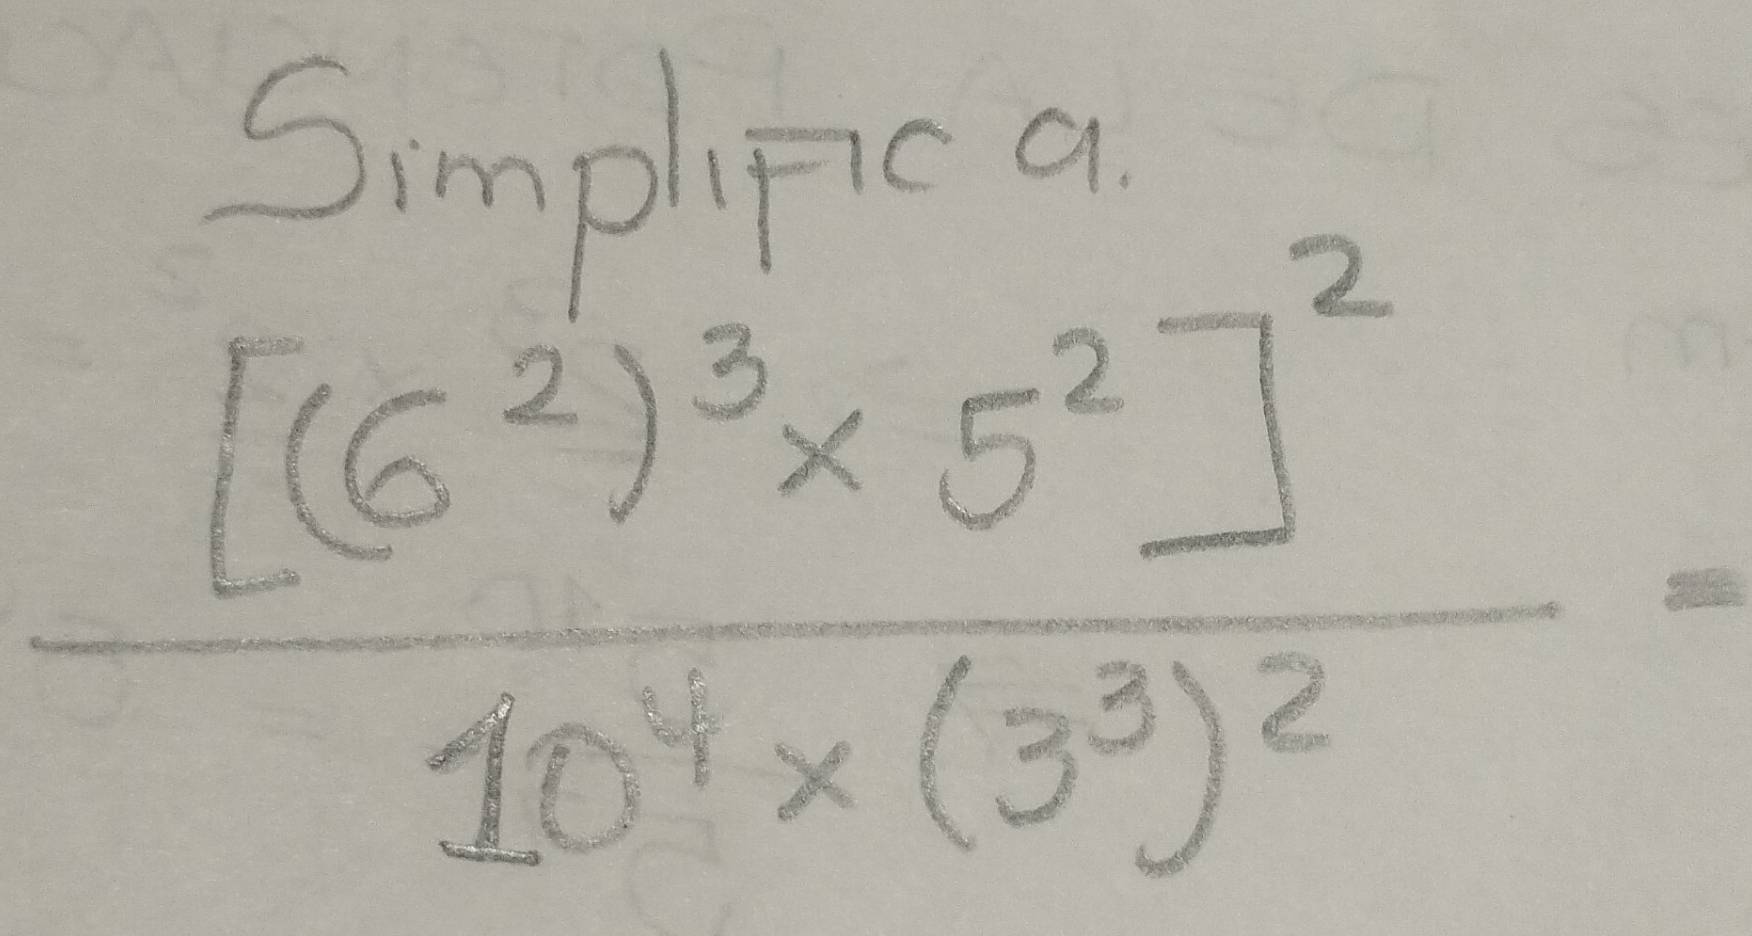 Simplifica.
[(6²)³ × 5²]²
=
10⁴ × (3³)²